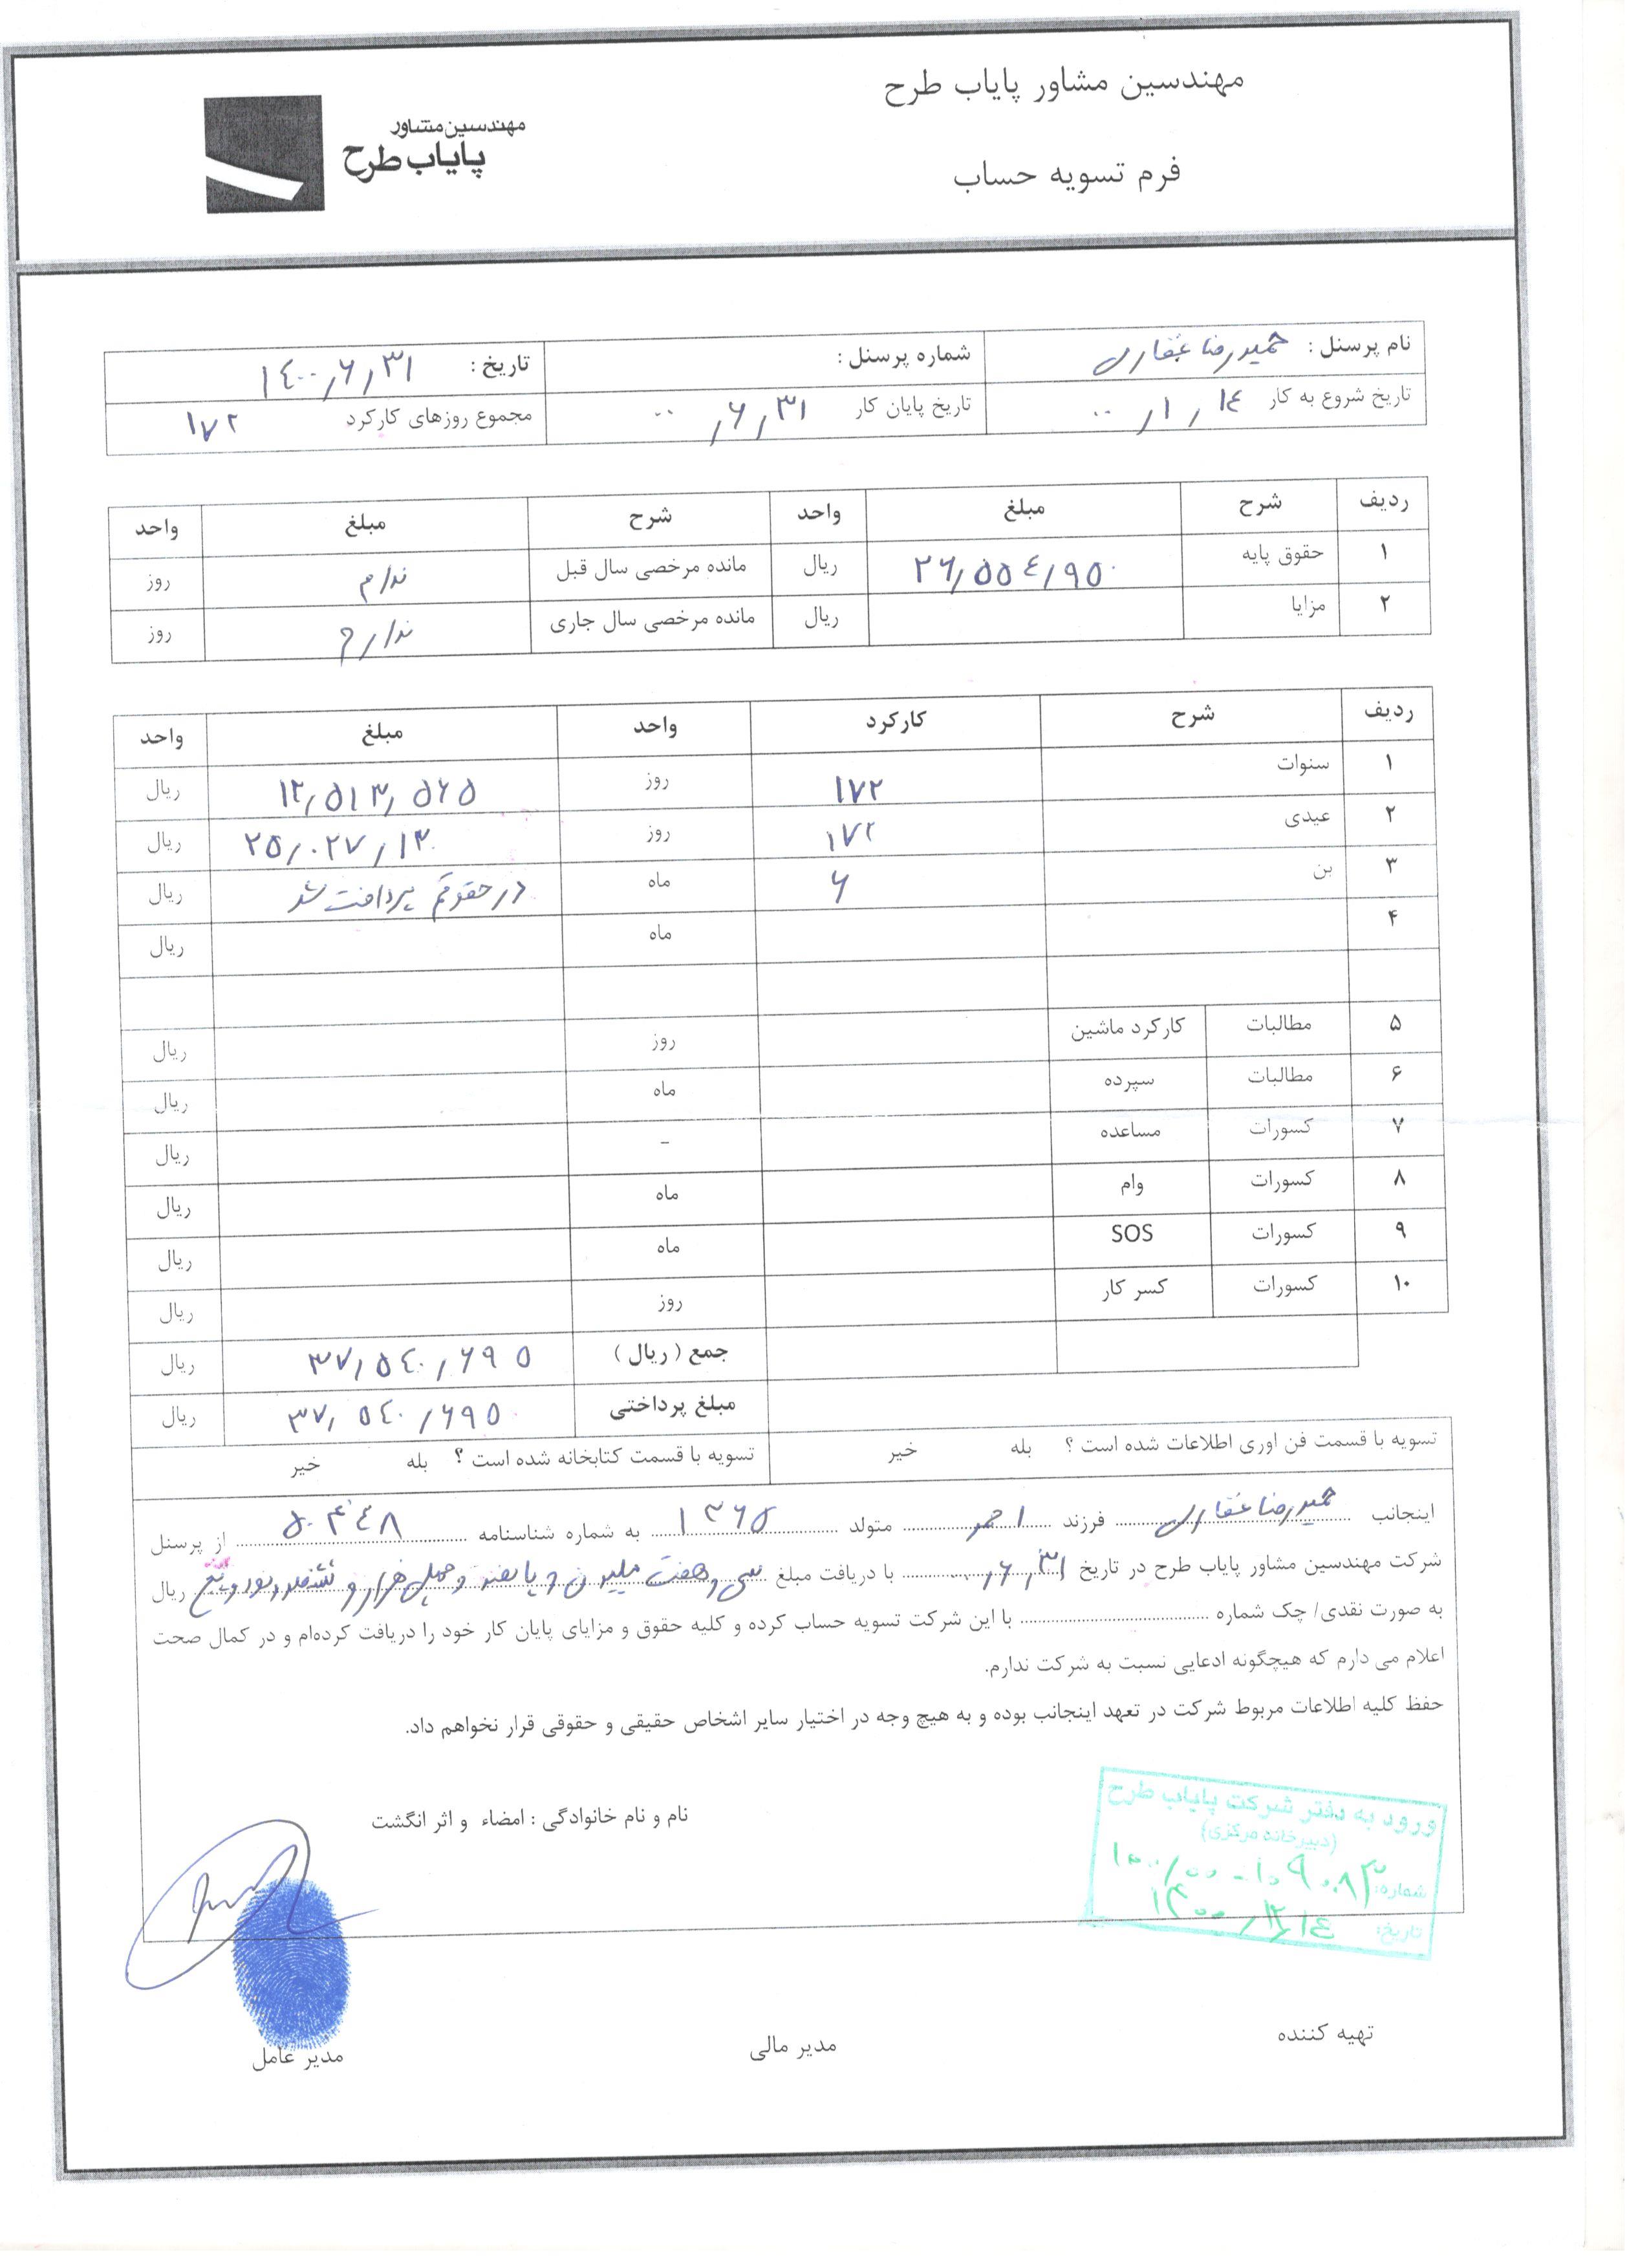 مهندسین مشاور پایاب طرح
فرم تسویه حساب
مهندسین مشاور
پایاب طرح
نام پرسنل : حمیدرضا غفاری شماره پرسنل : تاریخ : ۱۴۰۰/۶/۳۱
تاریخ شروع به کار ۰۰/۱/۱۴ تاریخ پایان کار ۰۰/۶/۳۱ مجموع روزهای کارکرد ۱۷۲
ردیف شرح مبلغ واحد شرح مبلغ واحد
۱ حقوق پایه ۲۶/۵۵۴/۹۵۰ ریال مانده مرخصی سال قبل ندارم روز
۲ مزایا ریال مانده مرخصی سال جاری ندارم روز
ردیف شرح کارکرد واحد مبلغ واحد
۱ سنوات ۱۷۲ روز ۱۲/۵۱۳/۵۶۵ ریال
۲ عیدی ۱۷۲ روز ۲۵/۰۲۷/۱۳۰ ریال
۳ بن ۶ ماه در حقوقم پرداخت شد ریال
۴ ماه ریال
۵ مطالبات کارکرد ماشین روز ریال
۶ مطالبات سپرده ماه ریال
۷ کسورات مساعده - ریال
۸ کسورات وام ماه ریال
۹ کسورات SOS ماه ریال
۱۰ کسورات کسر کار روز ریال
جمع ( ریال ) ۳۷/۵۴۰/۶۹۵ ریال
مبلغ پرداختی ۳۷/۵۴۰/۶۹۵ ریال
تسویه با قسمت فن اوری اطلاعات شده است ؟ بله خیر تسویه با قسمت کتابخانه شده است ؟ بله خیر
اینجانب حمیدرضا غفاری فرزند احمد متولد ۱۳۶۵ به شماره شناسنامه ۵۰۳۴۸ از پرسنل
شرکت مهندسین مشاور پایاب طرح در تاریخ ۰۰/۶/۳۱ با دریافت مبلغ سی و هفت میلیون و پانصد و چهل هزار و ششصد و نود و پنج ریال
به صورت نقدی/ چک شماره با این شرکت تسویه حساب کرده و کلیه حقوق و مزایای پایان کار خود را دریافت کرده‌ام و در کمال صحت
اعلام می دارم که هیچگونه ادعایی نسبت به شرکت ندارم.
حفظ کلیه اطلاعات مربوط شرکت در تعهد اینجانب بوده و به هیچ وجه در اختیار سایر اشخاص حقیقی و حقوقی قرار نخواهم داد.
نام و نام خانوادگی : امضاء و اثر انگشت
ورود به دفتر شرکت پایاب طرح
(دبیرخانه مرکزی)
شماره:
تاریخ: ۱۴۰۰/۱۲/۱۴
تهیه کننده مدیر مالی مدیر عامل